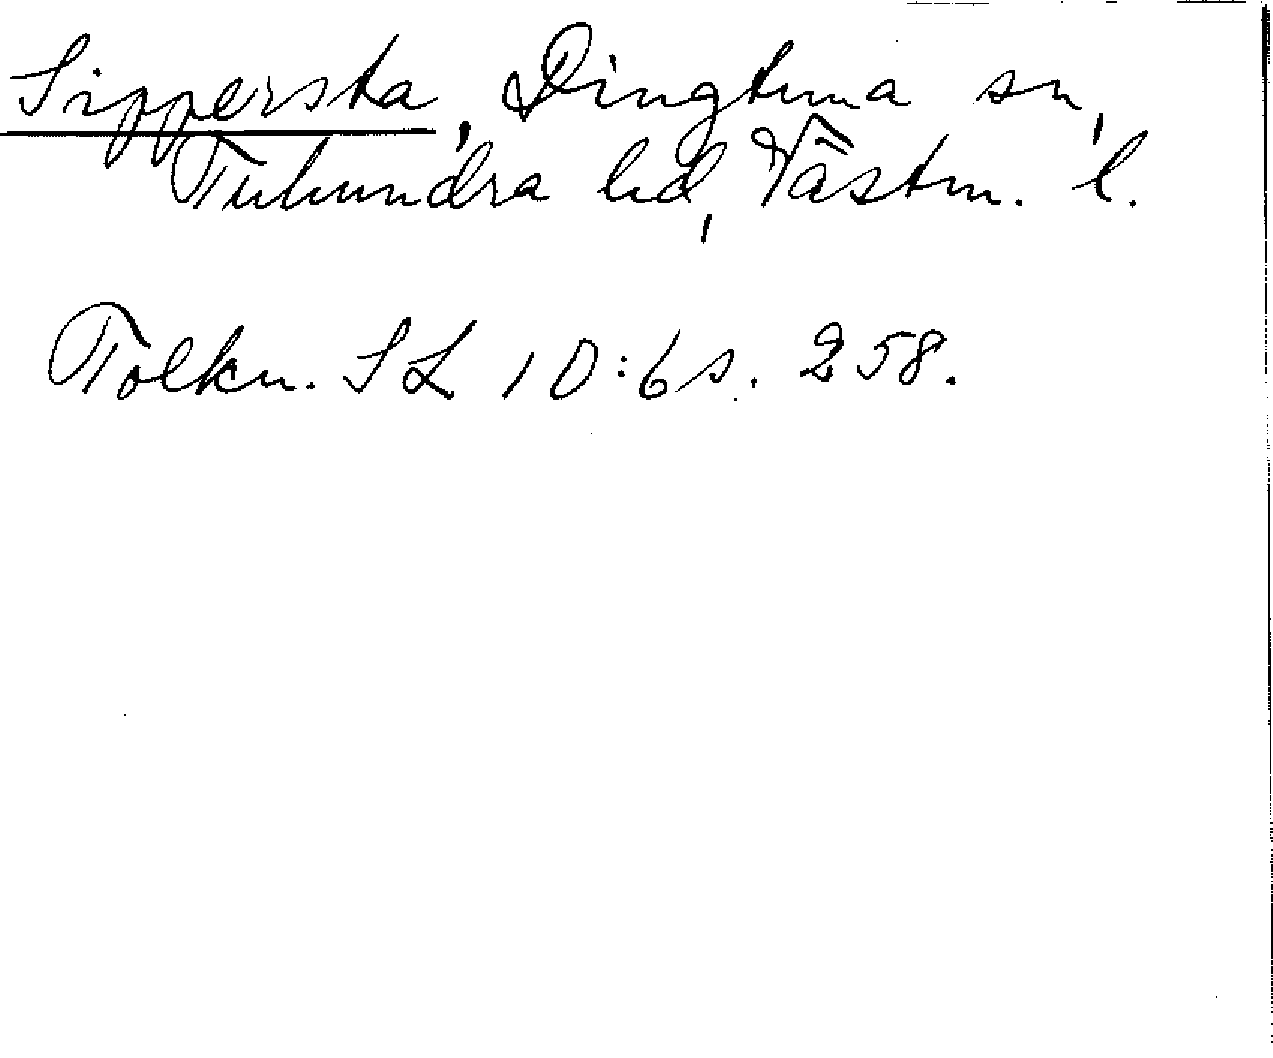 Sippersta, Dingtuna sn,
Tuhundra hd, Västm. l.
Tolkn. SL 10:6 s. 258.